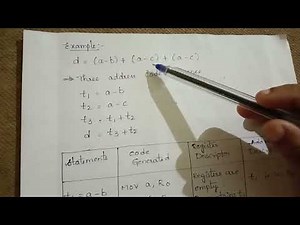 Example:-
d = (a-b) + (a-c) + (a-c)
→ Three address code
t₁ = a-b
t₂ = a-c
t₃ = t₁+t₂
d = t₃+t₂
Statements Code Generated Register Descriptor
t₁ = a-b Mov a, R₀ registers are empty